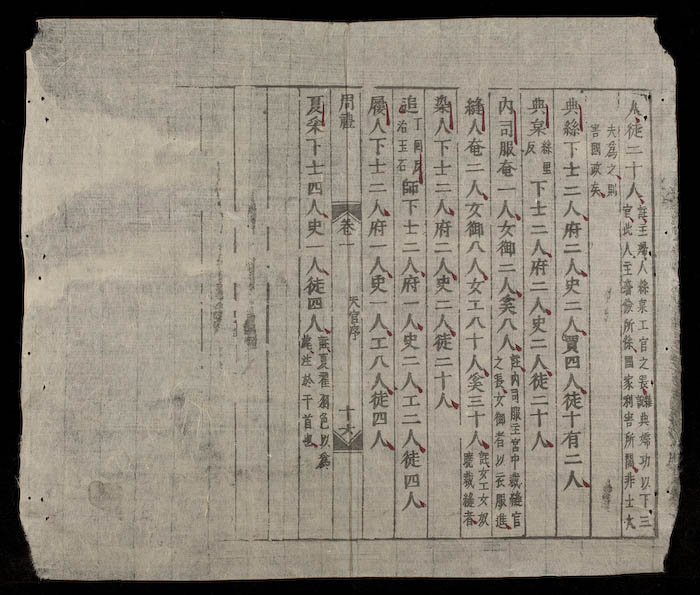 人徒二十人註主婦人絲枲工官之長典婦功以下三
官此人主斂所係國家利害所關非士大
夫為之則
害國政矣
典絲下士二人府二人史二人賈四人徒十有二人
典枲絲里反下士二人府二人史二人徒二十人
內司服奄一人女御二人奚八人註內司服主宮中裁縫官之長女御者以衣服進
縫人奄二人女御八人女工八十人奚三十人註女工女奴曉裁縫者
染人下士二人府二人史二人徒二十人
追丁回反治玉石師下士二人府一人史二人工二人徒四人
屨人下士二人府一人史一人工八人徒四人
周禮 卷一 天官序 十六
夏采下士四人史 人徒四人註夏翟羽色以為緌注於干首也